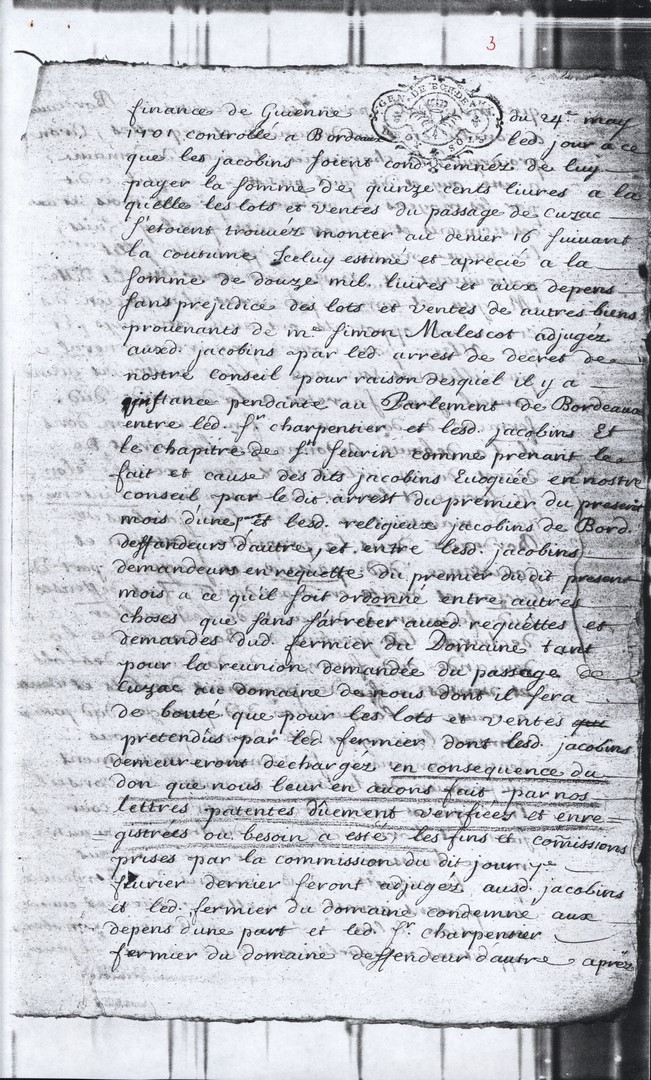 3
GEN. DE BORDEAUX
SOLS
finance de Guienne du 24e may
1701 controllé a Bordeaux led. jour a ce
que les jacobins soient condemnez de luy
payer la somme de quinze cents livres a la
quelle les lots et ventes du passage de Cuzac
s'etoient trouvéz monter au denier 16 suivant
la coutume Iceluy estimé et aprecié a la
somme de douze mil. livres et aux depens
sans prejudice des lots et ventes de autres biens
provenants de me. simon Malescot adjugéz
auxd. jacobins par led. arrest de decret de
nostre conseil pour raison desquel il y a
instance pendante au Parlement de Bordeaux
entre led. sr. charpentier et lesd. jacobins Et
le chapitre de st. seurin comme prenant le
fait et cause des dits jacobins Evoquée en nostre
conseil par le dit arrest du premier du present
mois d'une pt. et lesd. religieux jacobins de Bord.
deffandeurs d'autre, et entre lesd. jacobins
demandeurs en requette du premier dudit present
mois a ce qu'il soit ordonné entre autres
choses que sans s'arreter auxd. requéttes et
demandes dud. fermier du Domaine tant
pour la reunion demandée du passage de
Cuzac au domaine de nous dont il sera
de bouté que pour les lots et ventes
pretendûs par led. fermier dont lesd. jacobins
demeureront déchargéz en consequence du
don que nous leur en avons fait par nos
lettres patentes dûement verifiées et enre=
gistrées ou besoin a esté, les fins et comissions
prises par la commission du dit jour 7e
fevrier dernier seront adjugéz ausd. jacobins
et led. fermier du domaine condemné aux
depens d'une part et led. sr. charpentier
fermier du domaine deffendeur d'autre apréz